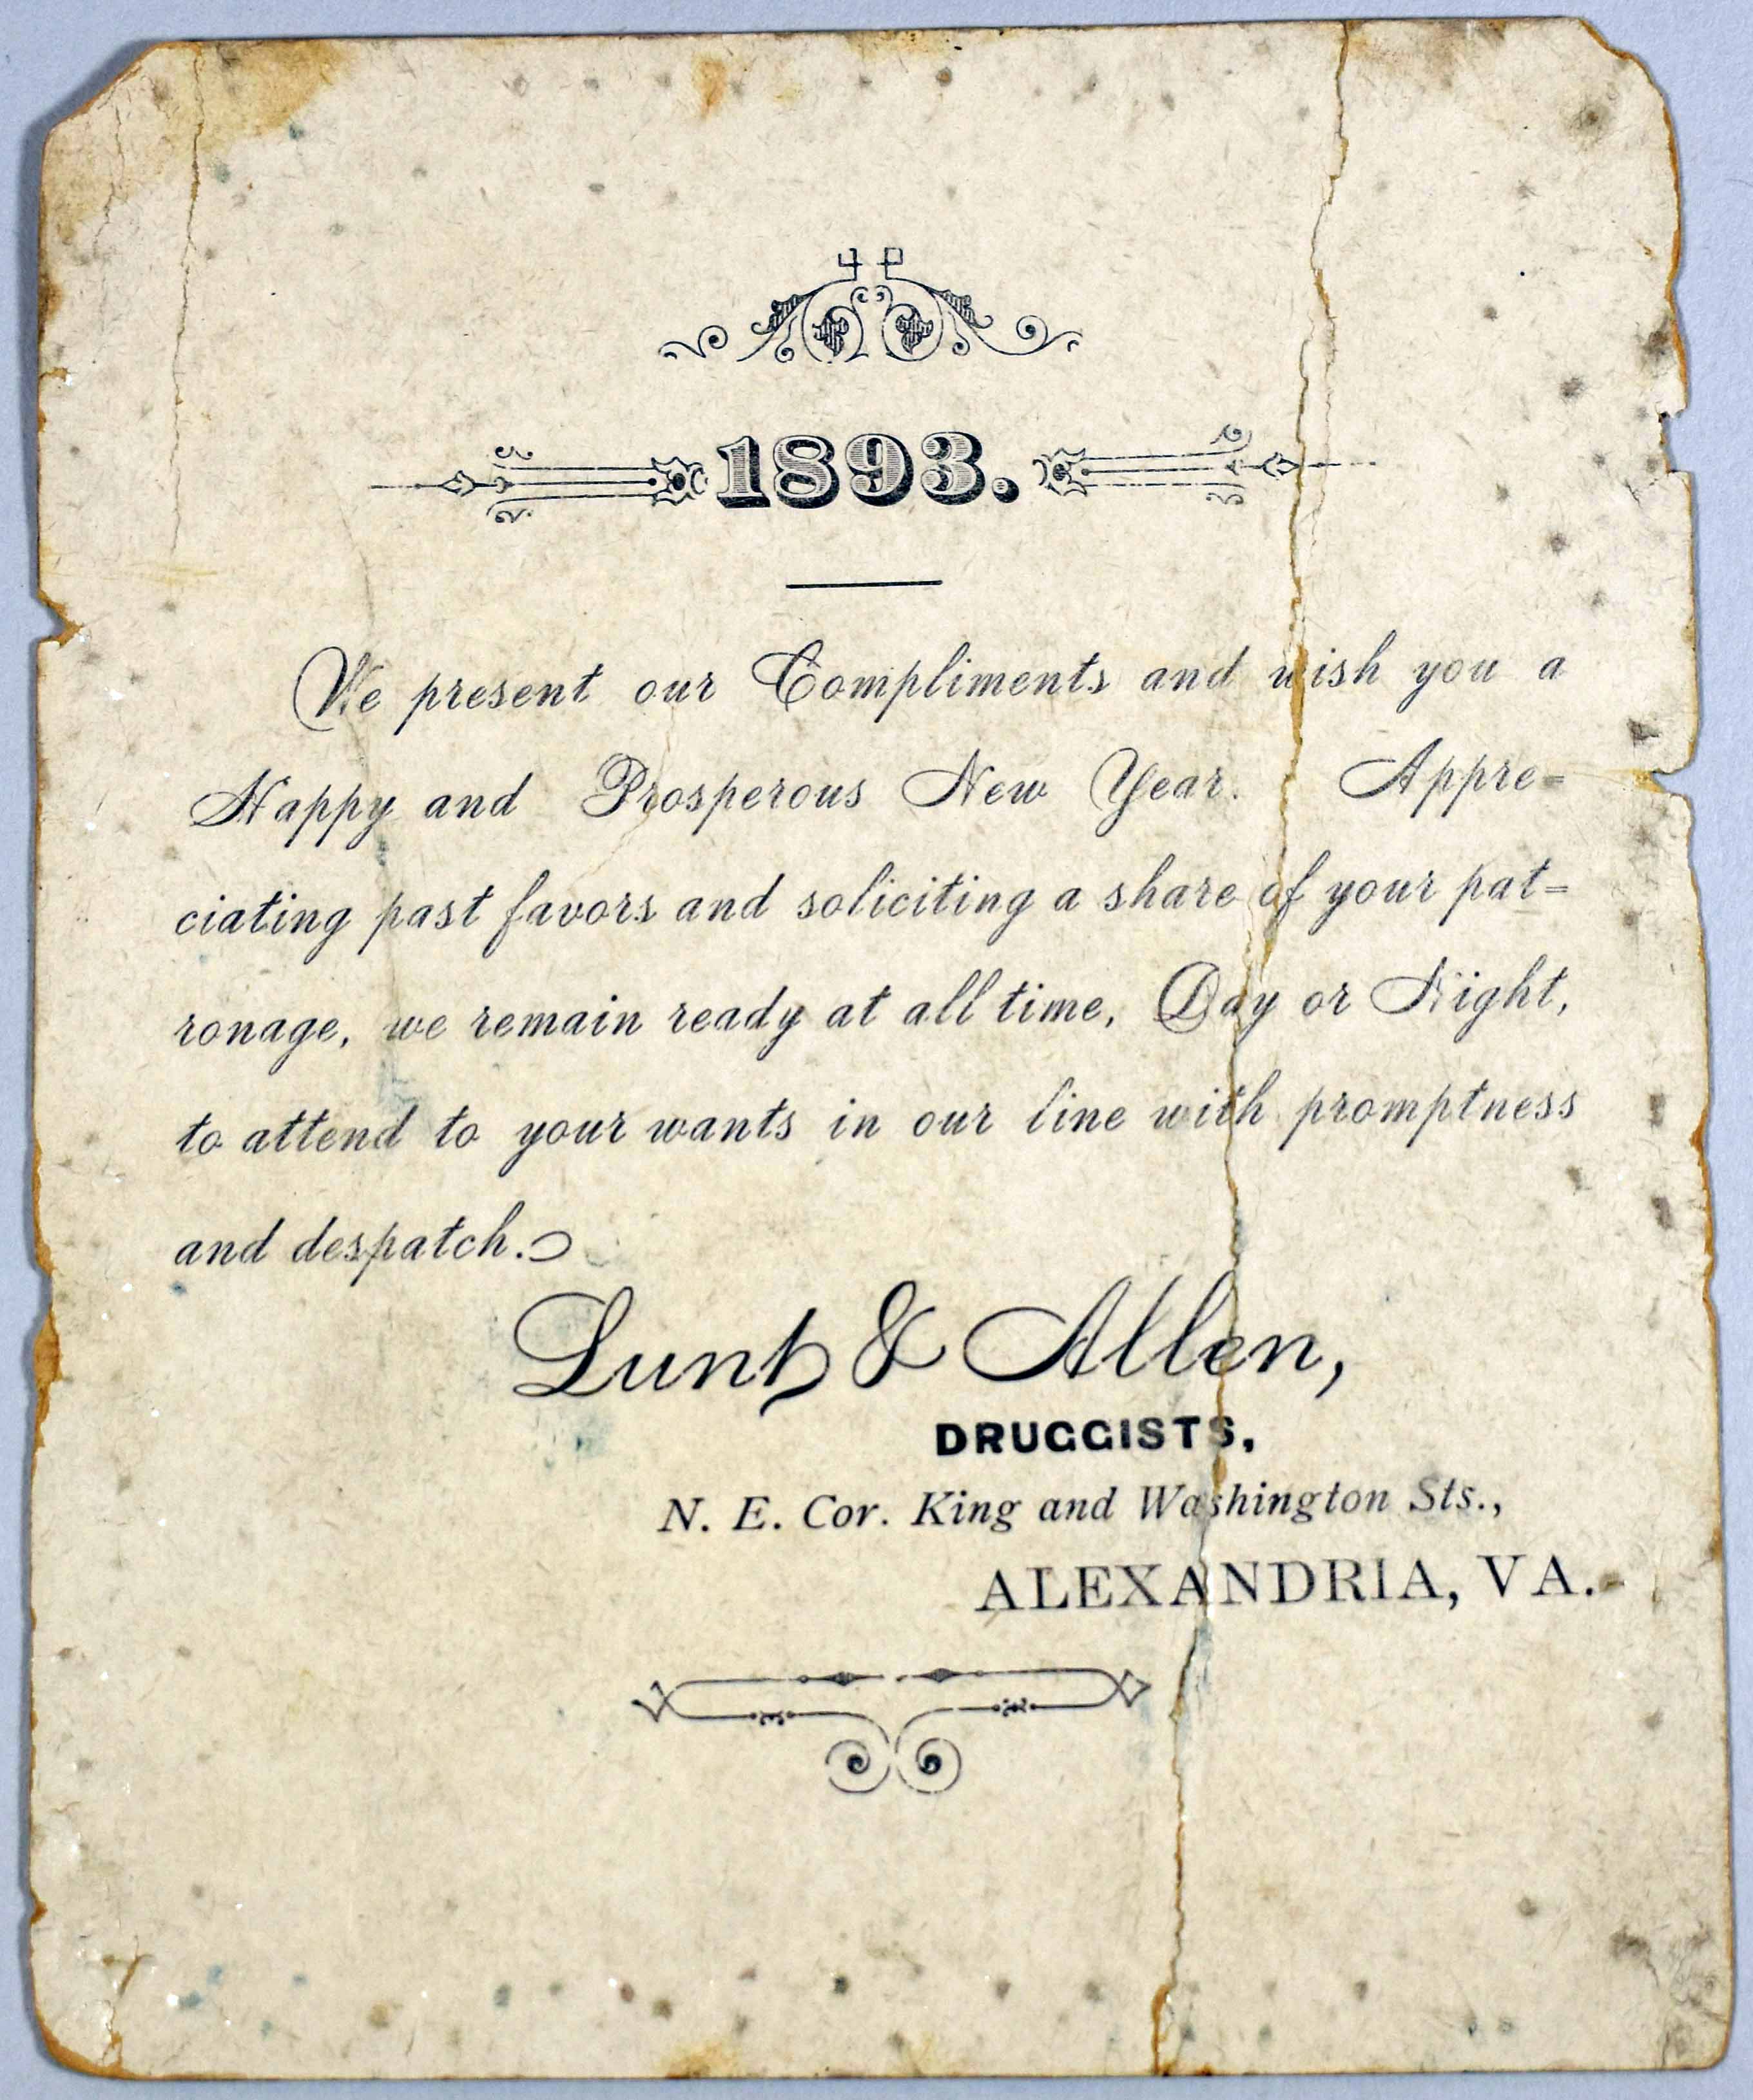 1893.
We present our Compliments and wish you a
Happy and Prosperous New Year. Appre=
ciating past favors and soliciting a share of your pat=
ronage, we remain ready at all time, Day or Night,
to attend to your wants in our line with promptness
and despatch.
Lunt & Allen,
DRUGGISTS,
N. E. Cor. King and Washington Sts.,
ALEXANDRIA, VA.